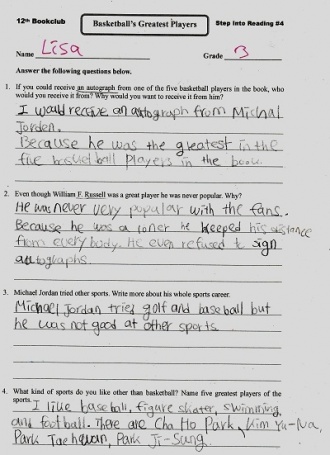 12th Bookclub
Basketball's Greatest Players
Step Into Reading #4
Name Lisa
Grade 3
Answer the following questions below.
1. If you could receive an autograph from one of the five basketball players in the book, who
would you receive it from? Why would you want to receive it from him?
I would receive an autograph from Michal
Jorden.
Because he was the greatest in the
five basketball players in the book.
2. Even though William F. Russell was a great player he was never popular. Why?
He was never very popular with the fans.
Because he was a loner he keeped his distance
from everybody. He even refused to sign
autographs.
3. Michael Jordan tried other sports. Write more about his whole sports career.
Michael Jordan tried golf and baseball but
he was not good at other sports.
4. What kind of sports do you like other than basketball? Name five greatest players of the
sports.
I like baseball, figure skater, swimming
and football. There are Cha Ho Park, Kim Yu-Na,
Park Taehwan, Park Ji-Sung.